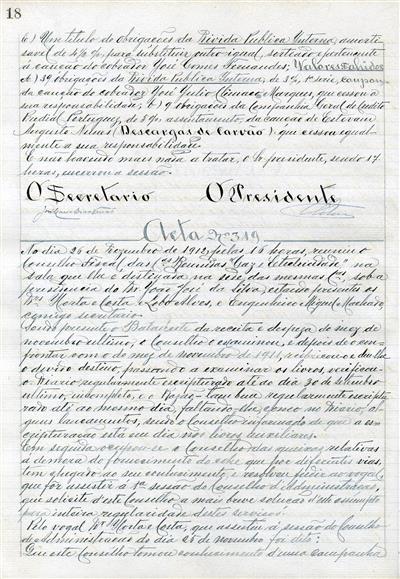 18
6) Um titulo de obrigações da Divida Publica Interna, amorti-
savel de 4½ %, para substituir outro igual, sorteado e pertencente
á caução do cobrador José Gomes Fernandes; Valores saidos
a) 39 obrigações da Divida Publica Interna, de 3%, 1ª série, coupon,
da caução do cobrador José Julio Marques, que cessou a
sua responsabilidade; b) 9 obrigações da Companhia Geral de Credito
Predial Portuguez, de 5%, assentamento, da caução de Estevam
Augusto Nunes (Descargas de Carvão), que cessou egual-
mente a sua responsabilidade.
E não havendo mais nada a tratar, o Sr. presidente, sendo 17
horas, encerrou a sessão.
O Secretario O Presidente
Acta Nº 319
No dia 26 de Dezembro de 1912, pelas 15 horas, reuniu o
Conselho Fiscal das Cªs Reunidas "Gaz e Electricidade" na
sala que lhe é destinada na séde das mesmas Cªs, sob a
presidencia do Sr. João José da Silva, estando presentes os
Srs. Motta e Costa e Lobo Alves, e Engenheiro Miguel Machado,
comigo secretario.
Sendo presente o Balancete da receita e despeza do mez de
novembro ultimo, o Conselho o examinou, e depois de o con-
frontar com o do mez de novembro de 1911, rubricou-o e deu-lhe
o devido destino, passando a examinar os livros, verifican-
do o Diario regularmente escripturado até ao dia 30 de setembro
ultimo, incompleto, e o Razão tambem regularmente escriptu-
rado até ao mesmo dia, faltando-lhe como no Diario, al-
guns lançamentos, sendo o Conselho informado de que a es-
cripturação está em dia nos livros auxiliares.
Em seguida occupou-se o Conselho das queixas relativas
á demora do fornecimento de coke que, por differentes vias,
tem chegado ao seu conhecimento, e resolveu pedir ao vogal
que fôr assistir á 1ª sessão do Conselho d'Administração,
que solicite d'este Conselho a mais breve solução d'este assumpto
para inteira regularidade d'estes serviços.
Pelo vogal Sr. Motta e Costa, que assistiu á sessão do Conselho
de Administração do dia 25 de novembro foi dito:
Que este Conselho tomou conhecimento d'uma campanha